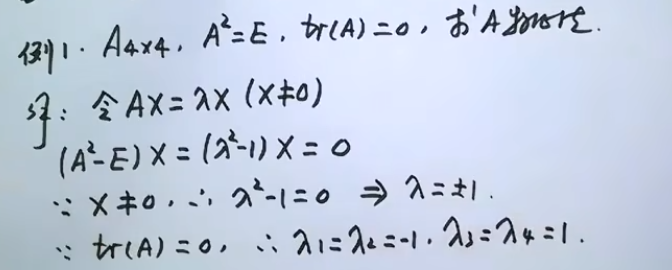 例1. A₄ₓ₄, A²=E, tr(A)=0, 求A特征值.
解: 令AX=λX (X≠0)
(A²-E)X=(λ²-1)X=0
∵ X≠0, ∴ λ²-1=0 ⇒ λ=±1.
∵ tr(A)=0, ∴ λ₁=λ₂=-1, λ₃=λ₄=1.